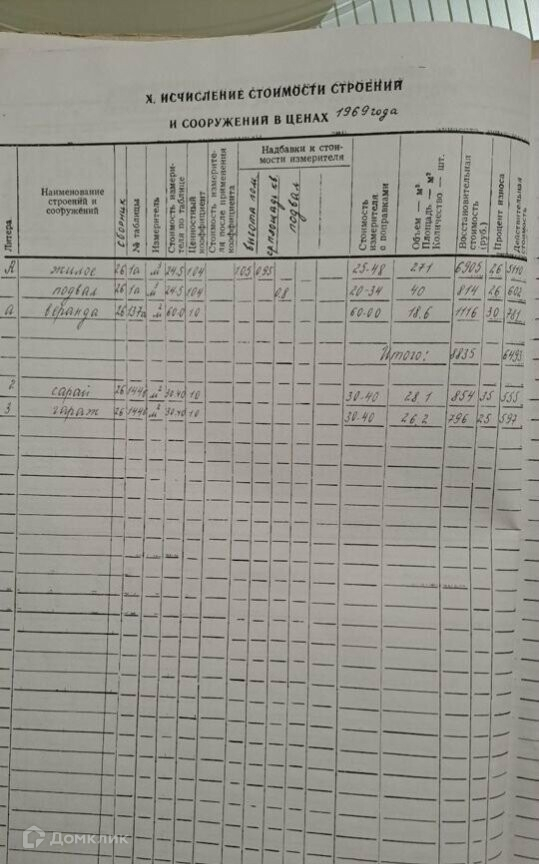 X. ИСЧИСЛЕНИЕ СТОИМОСТИ СТРОЕНИЙ
И СООРУЖЕНИЙ В ЦЕНАХ 1969 года
Литера
Наименование строений и сооружений
сборник
№ таблицы
Измеритель
Стоимость измерителя по таблице
Ценностный коэффициент
Стоимость измерителя после применения коэффициента
Надбавки к стоимости измерителя
Высота пом.
ср. площадь кв.
подвал
Стоимость измерителя с поправками
Объем — м³
Площадь — м²
Количество — шт.
Восстановительная стоимость (руб.)
Процент износа
Действительная стоимость
А жилое 26 1а м³ 24.5 1.04 1.05 0.95 25-48 271 6905 26 5110
подвал 26 1а м³ 24.5 1.04 0.8 20-34 40 814 26 602
а веранда 26 137а м² 60.0 1.0 60-00 18.6 1116 30 781
Итого: 8835 6493
2 сарай 26 144б м² 30.40 1.0 30-40 28.1 854 35 555
3 гараж 26 144б м² 30.40 1.0 30-40 26.2 796 25 597
Домклик